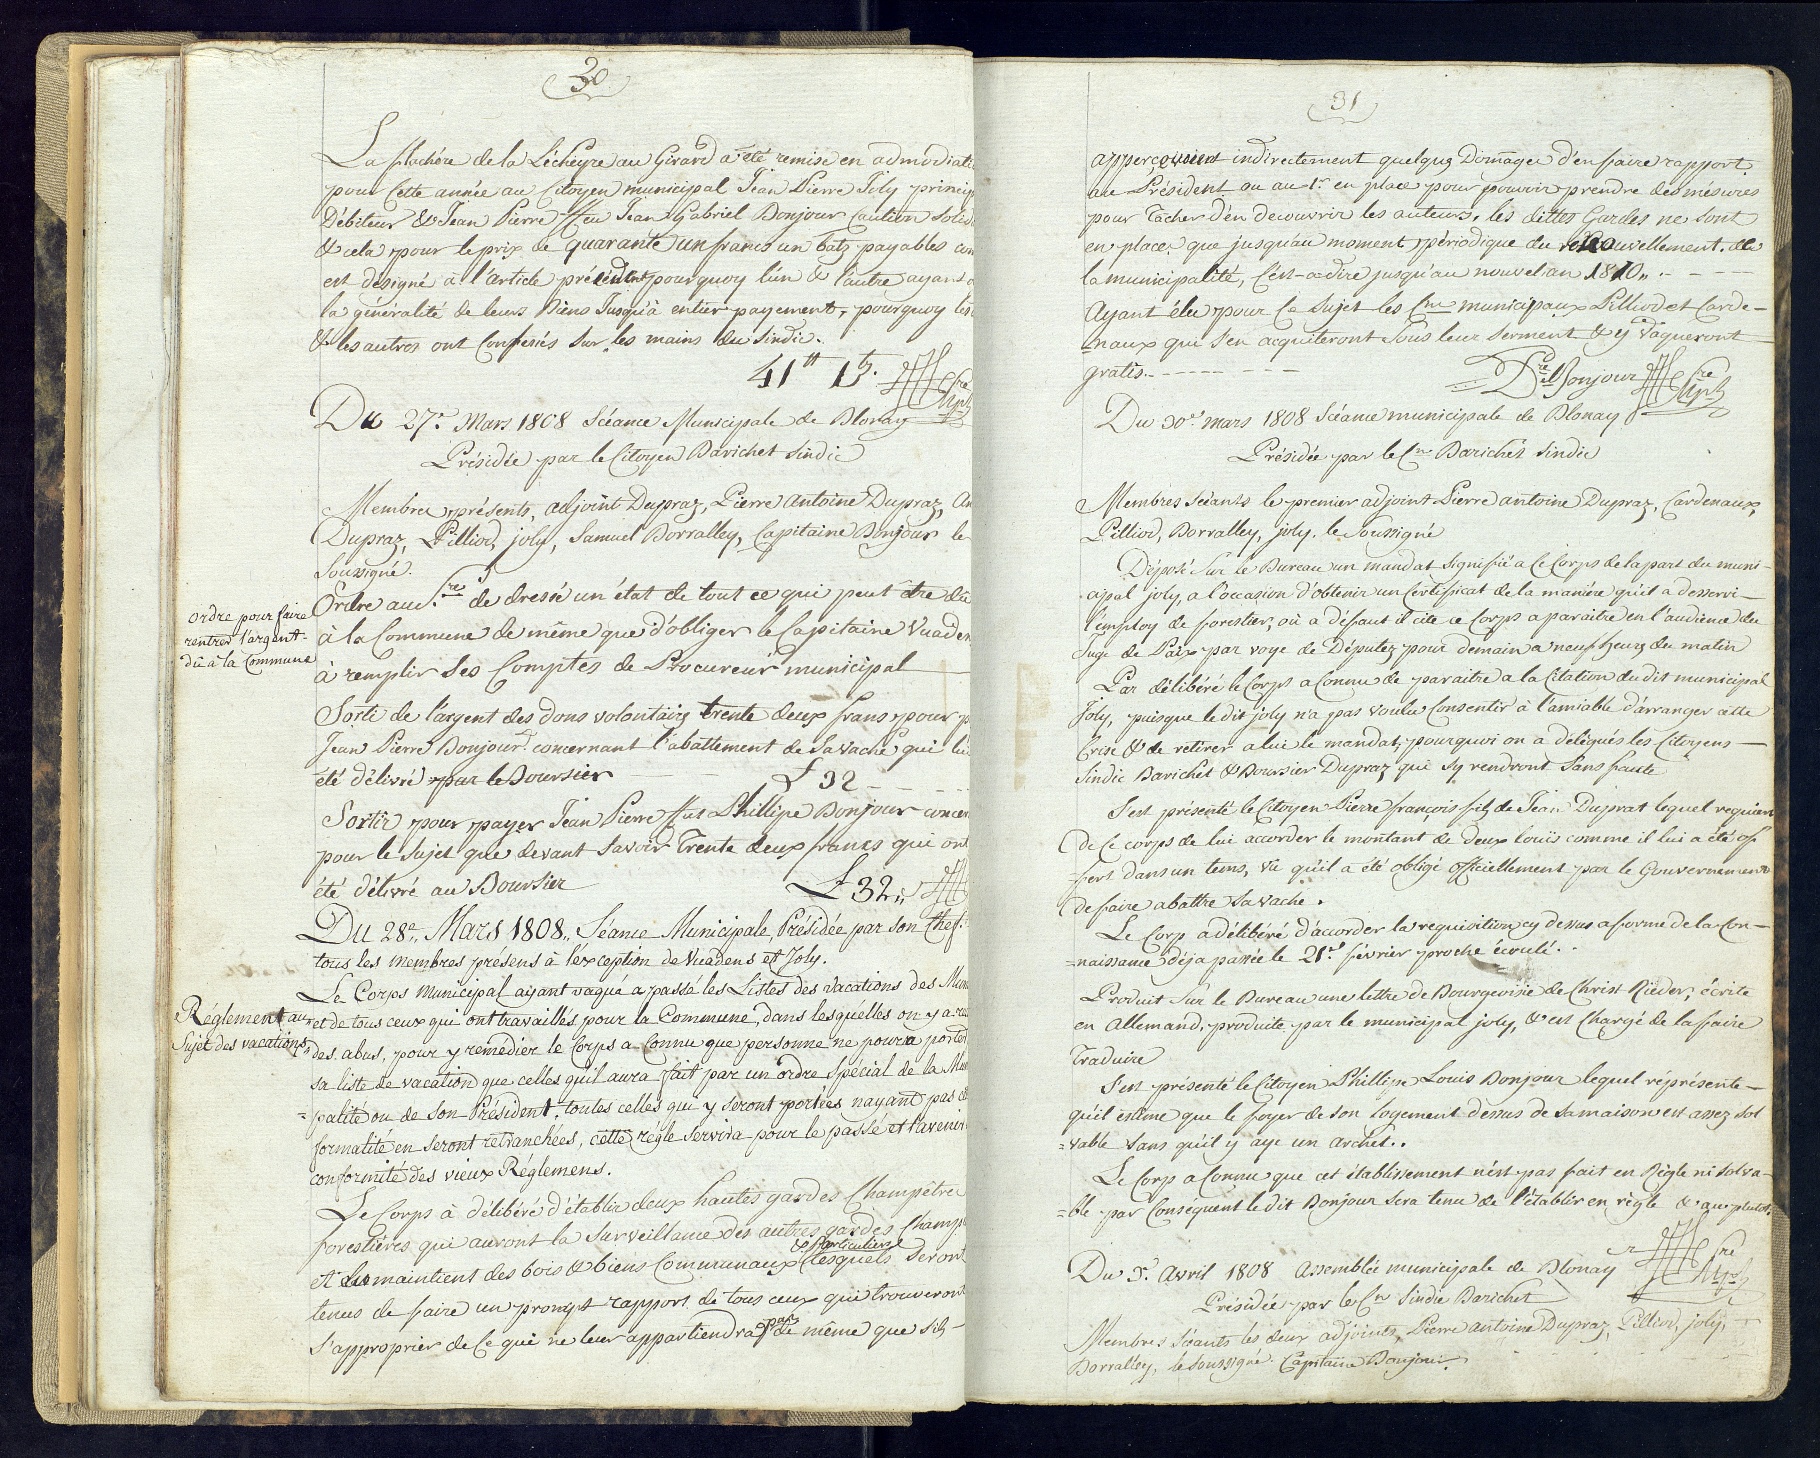 30
La flachére de la Lécheyre au Girard a été remise en admodiati
pour Cette année au Citoyen municipal Jean Pierre Joly princip
Débiteur & Jean Pierre ffeu Jean Gabriel Bonjour Caution solid
& cela pour le prix de quarante un francs un batz payables com
est désigné à l'article précédent pourquoy l'un & l'autre ayant
la généralité de leurs Biens Jusqu'à entier payement, pourquoy les
& les autres ont Conferiés sur les mains du Sindic.
41 tt 1 b.
Du 27.e Mars 1808 Séance Municipale de Blonay
Présidée par le Citoyen Barichet Sindic
Membres présents, adjoint Dupraz, Pierre Antoine Dupraz, An
Dupraz, Pilliod, joly, Samuel Borralley, Capitaine Bonjour le
Soussigné.
ordre pour faire
rentrer l'argent
dû à la Commune
Ordre au S.re de dressé un état de tout ce qui peut être dû
à la Commune de même que d'obliger le Capitaine Vuaden
à remplir ses Comptes de Procureur municipal
Sorti de l'argent des dons volontairs trente deux frans pour p
Jean Pierre Bonjour concernant l'abattement de sa vache qui lu
été délivré par le Boursier L 32
Sortir pour payer Jean Pierre ffeu Phillipe Bonjour concer
pour le sujet que devant savoir Trente deux francs qui ont
été délivré au Boursier L 32 "
Du 28.e Mars 1808. Séance Municipale, Présidée par son Chef.
tous les membres présens à l'exception de Vuadens et Joly.
Réglement au
Sujet des vacations
Le Corps municipal aiyant vaqué a passé les Listes des vacations des Mun
et de tous ceux qui ont travaillés pour la Commune, dans lesquélles on y a r
des abus, pour y remedier le Corps a Connu que personne ne poura porter
sa liste de vacation que celles qu'il aura fait par un ordre spécial de la Mun
=palité ou de son Président, toutes celles qui y seront portées nayant pas c
formalité en seront retranchées, cette régle servira pour le passé et l'avenir
conformité des vieux Réglemens.
Le Corps à délibéré d'établir deux hautes gardes Champêtre
forestières qui auront la surveillance des autres gardes Champ
et du maintient des bois & biens Communaux & particuliers lesquels seront
tenus de faire un prompt rapport de tous ceux qui trouveront
s'approprier de Ce qui ne leur appartiendra pas de même que sils
31
apperçoivent indirectement quelques Domages d'en faire rapport
au Président ou au 1.r en place pour pouvoir prendre des mésures
pour Tacher d'en decouvrir les auteurs, les dittes Gardes ne sont
en places que jusqu'au moment périodique du renouvellement de
la municipalité, C'est-a-dire jusqu'au nouvel an 1810 "
Ayant élu pour Ce Sujet les C.ns municipaux Pilliod et Carde-
=naux qui s'en acquiteront sous leur serment & y vaqueront
gratis. Bonjour
Du 30.e mars 1808 Séance municipale de Blonay
Présidée par le C.n Barichet Sindic
Membres séants le premier adjoint Pierre antoine Dupraz, Cardenaux,
Pilliod, Borralley, joly. le Soussigné
Déposé sur le Bureau un mandat signifié a Ce Corps de la part du muni-
cipal joly, a l'occasion d'obtenir un Certificat de la maniére qu'il a desservi
l'employ de forestier, où a défaut il cite ce Corps a paraitre en l'audience du
Juge de Paix par voye de Députez pour demain a neuf heurs du matin
Par délibéré le Corps a Connu de paraitre a la Citation du dit municipal
Joly, puisque le dit joly n'a pas voulu Consentir à l'amiable d'arranger cette
Crise & de retirer a lui le mandat, pourquoi on a délégués les Citoyens
Sindic Barichet & Boursier Dupraz qui s'y rendront sans faute
S'est présenté le Citoyen Pierre françois fils de Jean Duprat lequel requiert
de Ce corps de lui accorder le montant de deux louis comme il lui a été of
=fert dans un tems, vu qu'il a été obligé officiellement par le Gouvernement
de faire abattre sa vache.
Le Corp a délibéré d'accorder la requisition cy dessus a forme de la Con-
=naissance déja passée le 21.e février proche écoulé.
Produit sur le Bureau une lettre de Bourgeoisie de Christ Rieder, écrite
en Allemand, produite par le municipal joly, & est Chargé de la faire
Traduire
S'est présenté le Citoyen Phillipe Louis Bonjour lequel réprésente
qu'il estime que le foyer de son logement dessus de sa maison est assez sol
=vable sans qu'il y aye un archet..
Le Corp a Connu que cet établissement n'est pas fait en Règle ni solva-
=ble par Conséquent le dit Bonjour sera tenu de l'établir en règle & au plutot.
Du 5.e Avril 1808 Assemblée municipale de Blonay
Présidée par le C.n Sindic Barichet
Membres séants les deux adjoints, Pierre antoine Dupraz, Pilliod, joly,
Borralley, le soussigné. Capitaine Bonjour.